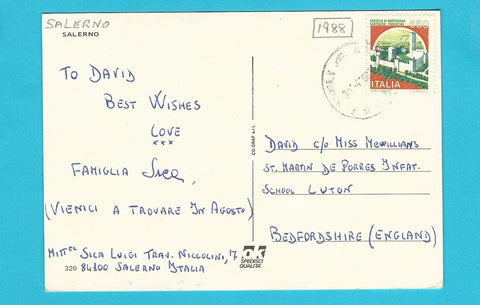 SALERNO
1988
SALERNO
CASTELLO DI MONTECCHIO
CASTIGLION FIORENTINO
650
ITALIA
TO DAVID
BEST WISHES
LOVE
xxx
FAMIGLIA Sica
(VIENICI A TROVARE IN AGOSTO)
MITTEL SICA LUIGI TRAV. NICCOLINI, 7
320 84100 SALERNO ITALIA
DAVID C/O MISS MCWILLIANS
ST. MARTIN DE PORRES INFAT.
SCHOOL LUTON
BEDFORDSHIRE (ENGLAND)
OK
SPEDISCI
QUALITA'